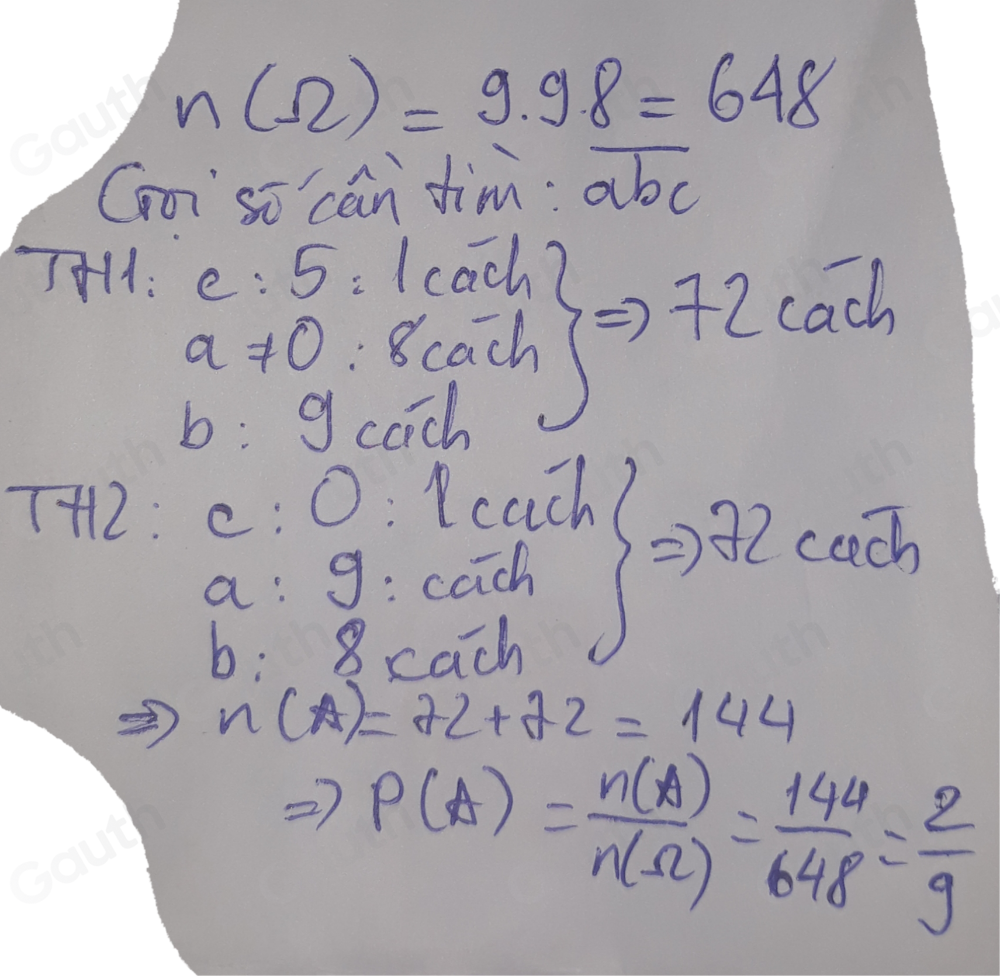 n(Ω) = 9.9.8 = 648
Gọi số cần tìm: \overline{abc}
TH1: c : 5 : 1 cách
a ≠ 0 : 8 cách } ⇒ 72 cách
b : 9 cách
TH2 : c : 0 : 1 cách
a : 9 : cách } ⇒ 72 cách
b : 8 cách
⇒ n(A) = 72 + 72 = 144
⇒ P(A) = n(A)/n(Ω) = 144/648 = 2/9
Gauth